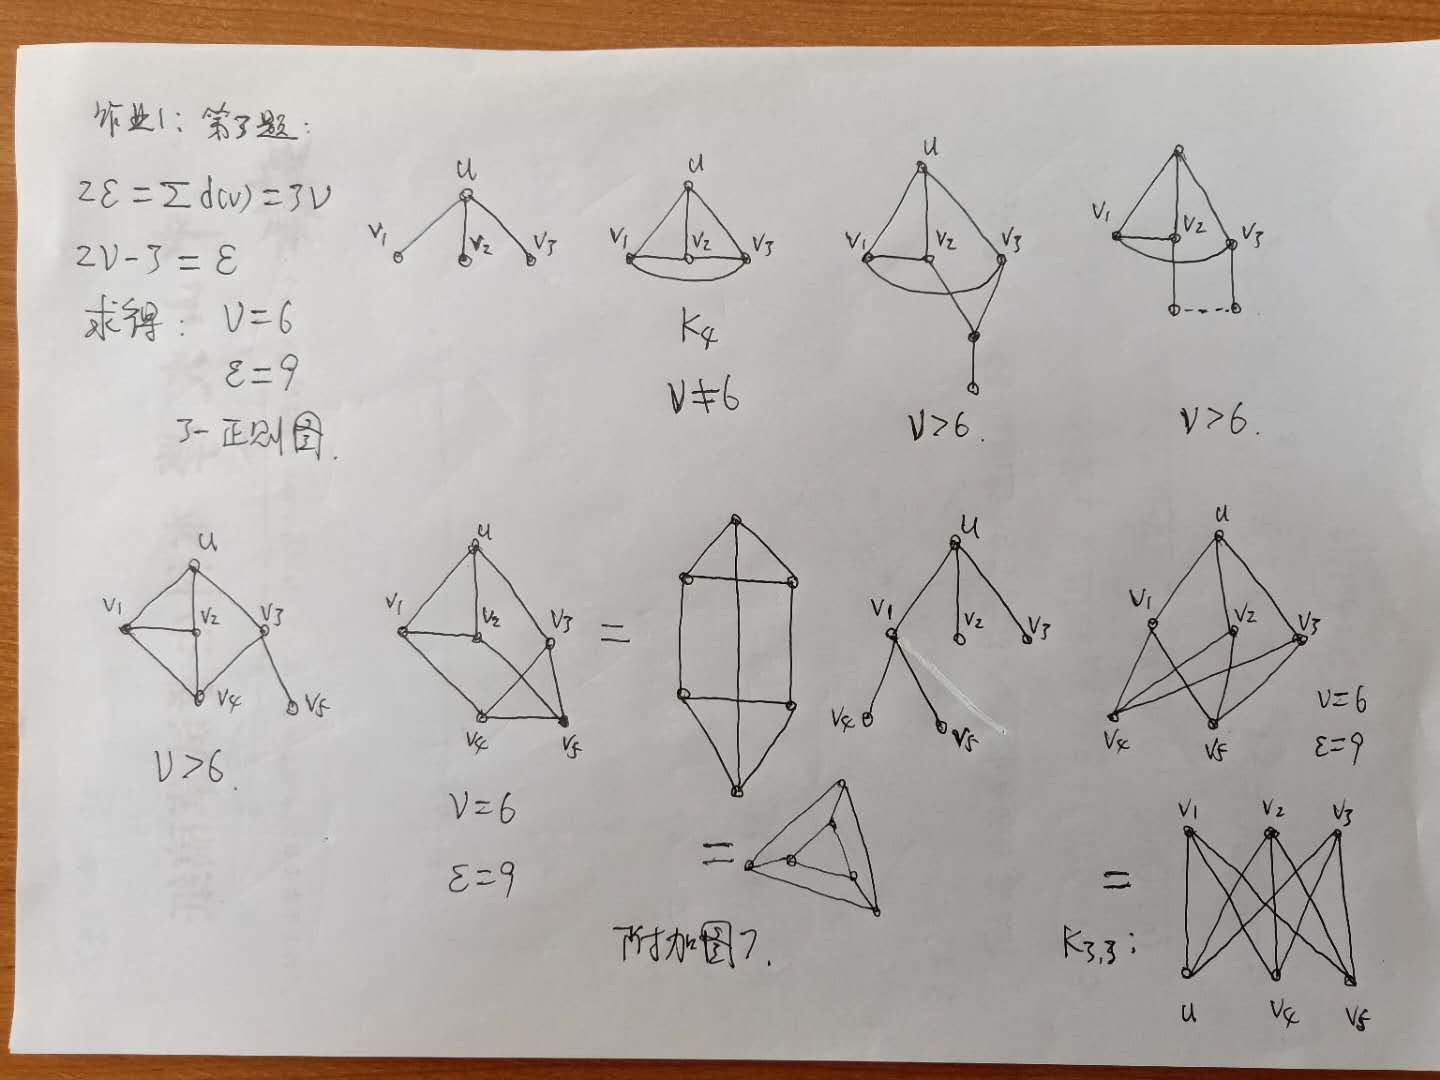 作业1：第3题：
2ε=∑d(v)=3ν
2ν-3=ε
求得：ν=6
ε=9
3-正则图.
u
v1 v2 v3
u
v1 v2 v3
K4
ν≠6
u
v1 v2 v3
ν>6.
v1 v2 v3
ν>6.
u
v1 v2 v3
v4 v5
ν>6.
u
v1 v2 v3
v4 v5
ν=6
ε=9
=
=
附加图7.
u
v1 v2 v3
v4 v5
u
v1 v2 v3
v4 v5
ν=6
ε=9
=
K3,3：
v1 v2 v3
u v4 v5